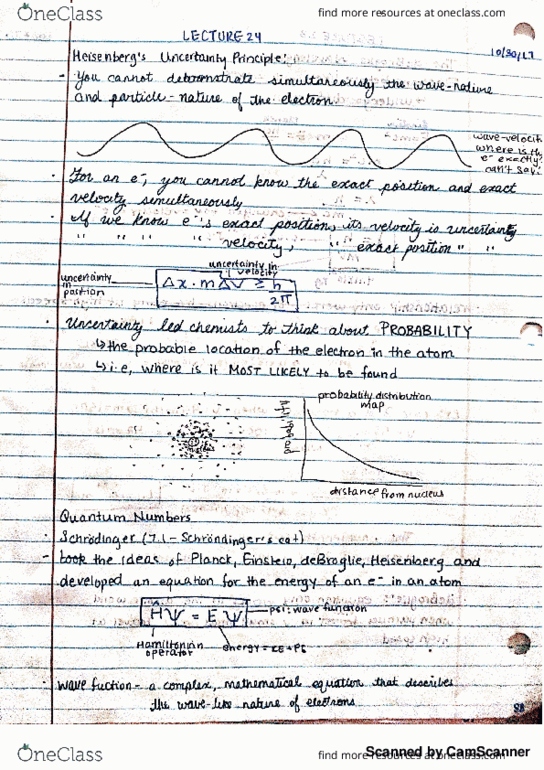 OneClass
find more resources at oneclass.com
LECTURE 24
10/30/17
Heisenberg's Uncertainty Principle:
- You cannot demonstrate simultaneously the wave-nature
and particle-nature of the electron.
wave-velocit
where is th
e⁻ exactly?
can't say.
· For an e⁻, you cannot know the exact position and exact
velocity simultaneously
· If we know e⁻'s exact position, its velocity is uncertainty
" " " " velocity, " exact position " "
uncertainty in
velocity
uncertainty
in
position
Δx · mΔV ≥ h/2π
· Uncertainty led chemists to think about PROBABILITY
↳ the probable location of the electron in the atom
↳ i.e, where is it MOST LIKELY to be found
probability distribution
map
probability
distance from nucleus
Quantum Numbers
· Schrödinger (7.1 - Schröndinger's cat)
- took the ideas of Planck, Einstein, deBroglie, Heisenberg and
developed an equation for the energy of an e⁻ in an atom
ĤΨ = EΨ
psi: wave function
Hamiltonian
operator
energy = KE + PE
· wave fuction - a complex, mathematical equation that describes
the wave-like nature of electrons
OneClass
find more resources at oneclass.com
Scanned by CamScanner